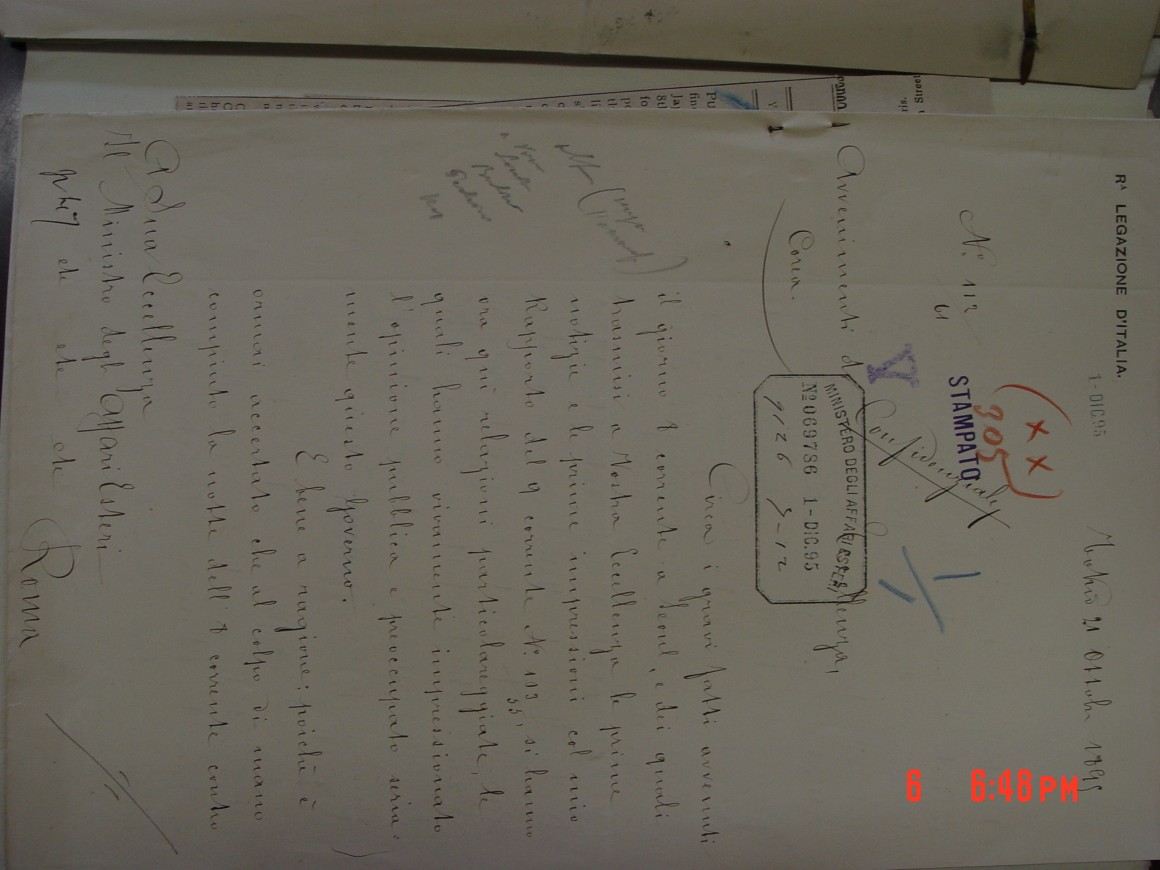 Rª LEGAZIONE D'ITALIA.
1-DIC.95
Tokio 21 Ottobre 1895
(x x)
305
STAMPATO
Nº 112
61
Confidenziale
Avvenimenti di
Corea.
Eccellenza,
MINISTERO DEGLI AFFARI ESTERI
Nº 069736 1-DIC.95
9126 3-12
Circa i gravi fatti avvenuti
il giorno 8 corrente a Seoul, e dei quali
trasmisi a Vostra Eccellenza le prime
notizie e le prime impressioni col mio
Rapporto del 9 corrente Nº 113, si hanno
55
ora quì relazioni particolareggiate, le
quali hanno vivamente impressionato
l'opinione pubblica e preoccupato seria-
mente questo Governo.
E bene a ragione; poichè è
ormai accertato che al colpo di mano
compiuto la notte dell'8 corrente contro
A Sua Eccellenza
Il Ministro degli Affari Esteri
etc etc etc
Roma
6 6:48PM